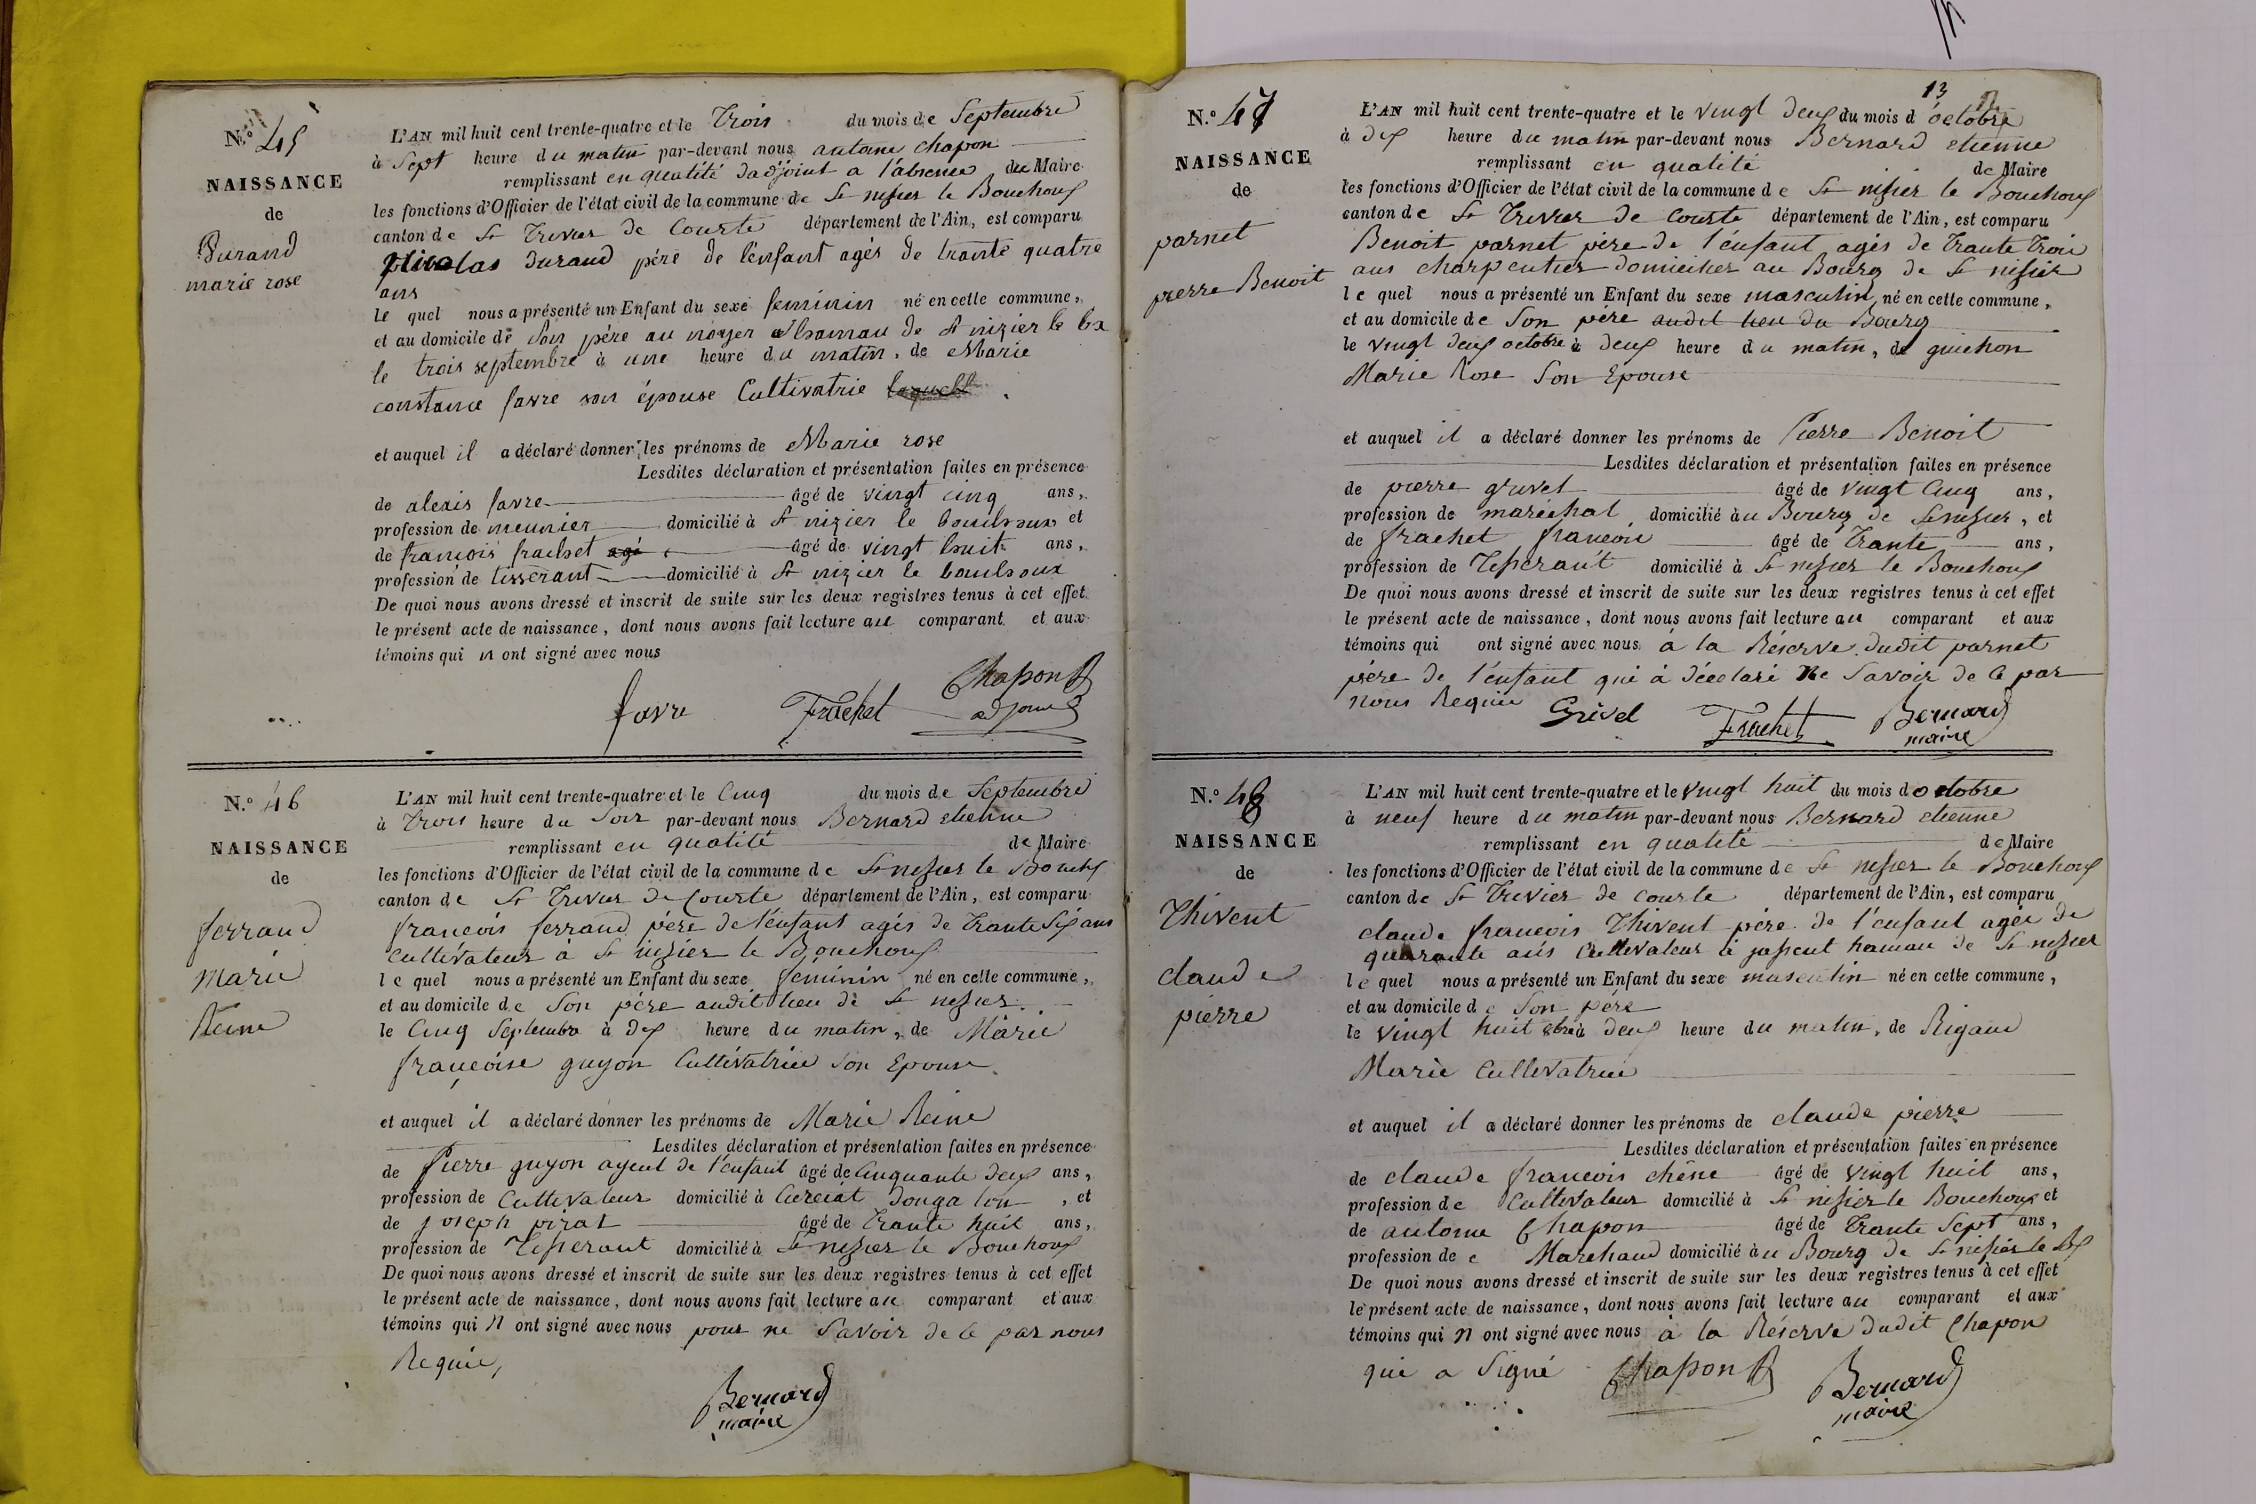 N.o 45
NAISSANCE
de
Durand
marie rose
L'AN mil huit cent trente-quatre et le Trois du mois de Septembre
à Sept heure du matin par-devant nous antoine chapon
remplissant en qualité dadjoint a l'absence du Maire
les fonctions d'Officier de l'état civil de la commune de St nisier le Bouchoux
canton de St Trivier de Courte département de l'Ain, est comparu
nicolas Durand pére de l'énfant agés de trante quatre
ans
le quel nous a présenté un Enfant du sexe feminin né en cette commune,
et au domicile de son pére au noyer hamau de St nizier le bx
le trois septembre à une heure du matin, de Marie
constance favre son épouse Cultivatrie laquelle
et auquel il a déclaré donner les prénoms de Marie rose
Lesdites déclaration et présentation faites en présence
de alexis favre âgé de vingt cinq ans,
profession de meunier domicilié à St nizier le bouchoux et
de françois frachet agé âgé de vingt huit ans,
profession de tisserant domicilié à St nizier le bouchoux
De quoi nous avons dressé et inscrit de suite sur les deux registres tenus à cet effet
le présent acte de naissance, dont nous avons fait lecture au comparant et aux
témoins qui n ont signé avec nous
favre Frachet Chapon
adjoint
N.o 46
NAISSANCE
de
ferrand
Marie
Reine
L'AN mil huit cent trente-quatre et le Cinq du mois de Septembre
à Trois heure du Soir par-devant nous Bernard etienne
remplissant en qualité de Maire
les fonctions d'Officier de l'état civil de la commune de St nisier le Bouchx
canton de St Trivier de Courte département de l'Ain, est comparu
françois ferrand pére de l'énfant agés de Trante Six ans
Cultivateur à St nizier le Bouchoux
le quel nous a présenté un Enfant du sexe féminin né en cette commune,
et au domicile de Son pére audit lieu de St nisier
le Cinq Septembre à dix heure du matin, de Marie
françoise guyon Cultivatrice Son Epouse
et auquel il a déclaré donner les prénoms de Marie Reine
Lesdites déclaration et présentation faites en présence
de Pierre guyon ayeul de l'enfant âgé de Cinquante deux ans,
profession de Cultivateur domicilié à Curciat donga lon , et
de joseph pirat âgé de Trante huit ans,
profession de Tisserant domicilié à St nizier le Bouchoux
De quoi nous avons dressé et inscrit de suite sur les deux registres tenus à cet effet
le présent acte de naissance, dont nous avons fait lecture au comparant et aux
témoins qui n ont signé avec nous pour ne Savoir de ce par nous
Requie,
Bernard
maire
13
N.o 47
NAISSANCE
de
parnet
pierre Benoit
L'AN mil huit cent trente-quatre et le vingt deux du mois d'octobre
à dix heure du matin par-devant nous Bernard etienne
remplissant en qualité de Maire
les fonctions d'Officier de l'état civil de la commune de St nisier le Bouchoux
canton de St Trivier de Courte département de l'Ain, est comparu
Benoit parnet pére de l'énfant agés de Trante Trois
ans charpentier domicilier au Bourg de St nisier
le quel nous a présenté un Enfant du sexe masculin né en cette commune,
et au domicile de Son pére audit lieu du Bourg
le vingt deux octobre à deux heure du matin, de guichon
Marie Rose Son Epouse
et auquel il a déclaré donner les prénoms de Pierre Benoit
Lesdites déclaration et présentation faites en présence
de pierre grivet âgé de vingt Cinq ans,
profession de maréchal domicilié àu Bourg de St nisier, et
de frachet françois âgé de Trante ans,
profession de Tisserant domicilié à St nisier le Bouchoux
De quoi nous avons dressé et inscrit de suite sur les deux registres tenus à cet effet
le présent acte de naissance, dont nous avons fait lecture au comparant et aux
témoins qui ont signé avec nous à la Réserve dudit parnet
pére de l'énfant qui à déeclaré Ne Savoir de ce par
nous Requie Grivel Frachet Bernard
maire
N.o 48
NAISSANCE
de
Thivent
claude
pierre
L'AN mil huit cent trente-quatre et le vingt huit du mois d octobre
à neuf heure du matin par-devant nous Bernard etienne
remplissant en qualité de Maire
les fonctions d'Officier de l'état civil de la commune de St nisier le Bouchoux
canton de St Trivier de courte département de l'Ain, est comparu
claude francois Thivent pére de l'énfant agée de
quarante ans Cultivateur à hamau de St nisier
le quel nous a présenté un Enfant du sexe masculin né en cette commune,
et au domicile de Son pére
le vingt huit 8bre à deux heure du matin, de Rigaud
Marie Cultivatrice
et auquel il a déclaré donner les prénoms de claude pierre
Lesdites déclaration et présentation faites en présence
de claude francois chêne âgé de vingt huit ans,
profession de Cultivateur domicilié à St nisier le Bouchoux et
de antoine Chapon âgé de Trante Sept ans,
profession de Marchand domicilié àu Bourg de St nisier le Bx
De quoi nous avons dressé et inscrit de suite sur les deux registres tenus à cet effet
le présent acte de naissance, dont nous avons fait lecture au comparant et aux
témoins qui n ont signé avec nous à la Réserve dudit Chapon
qui a Signé Chapon Bernard
maire